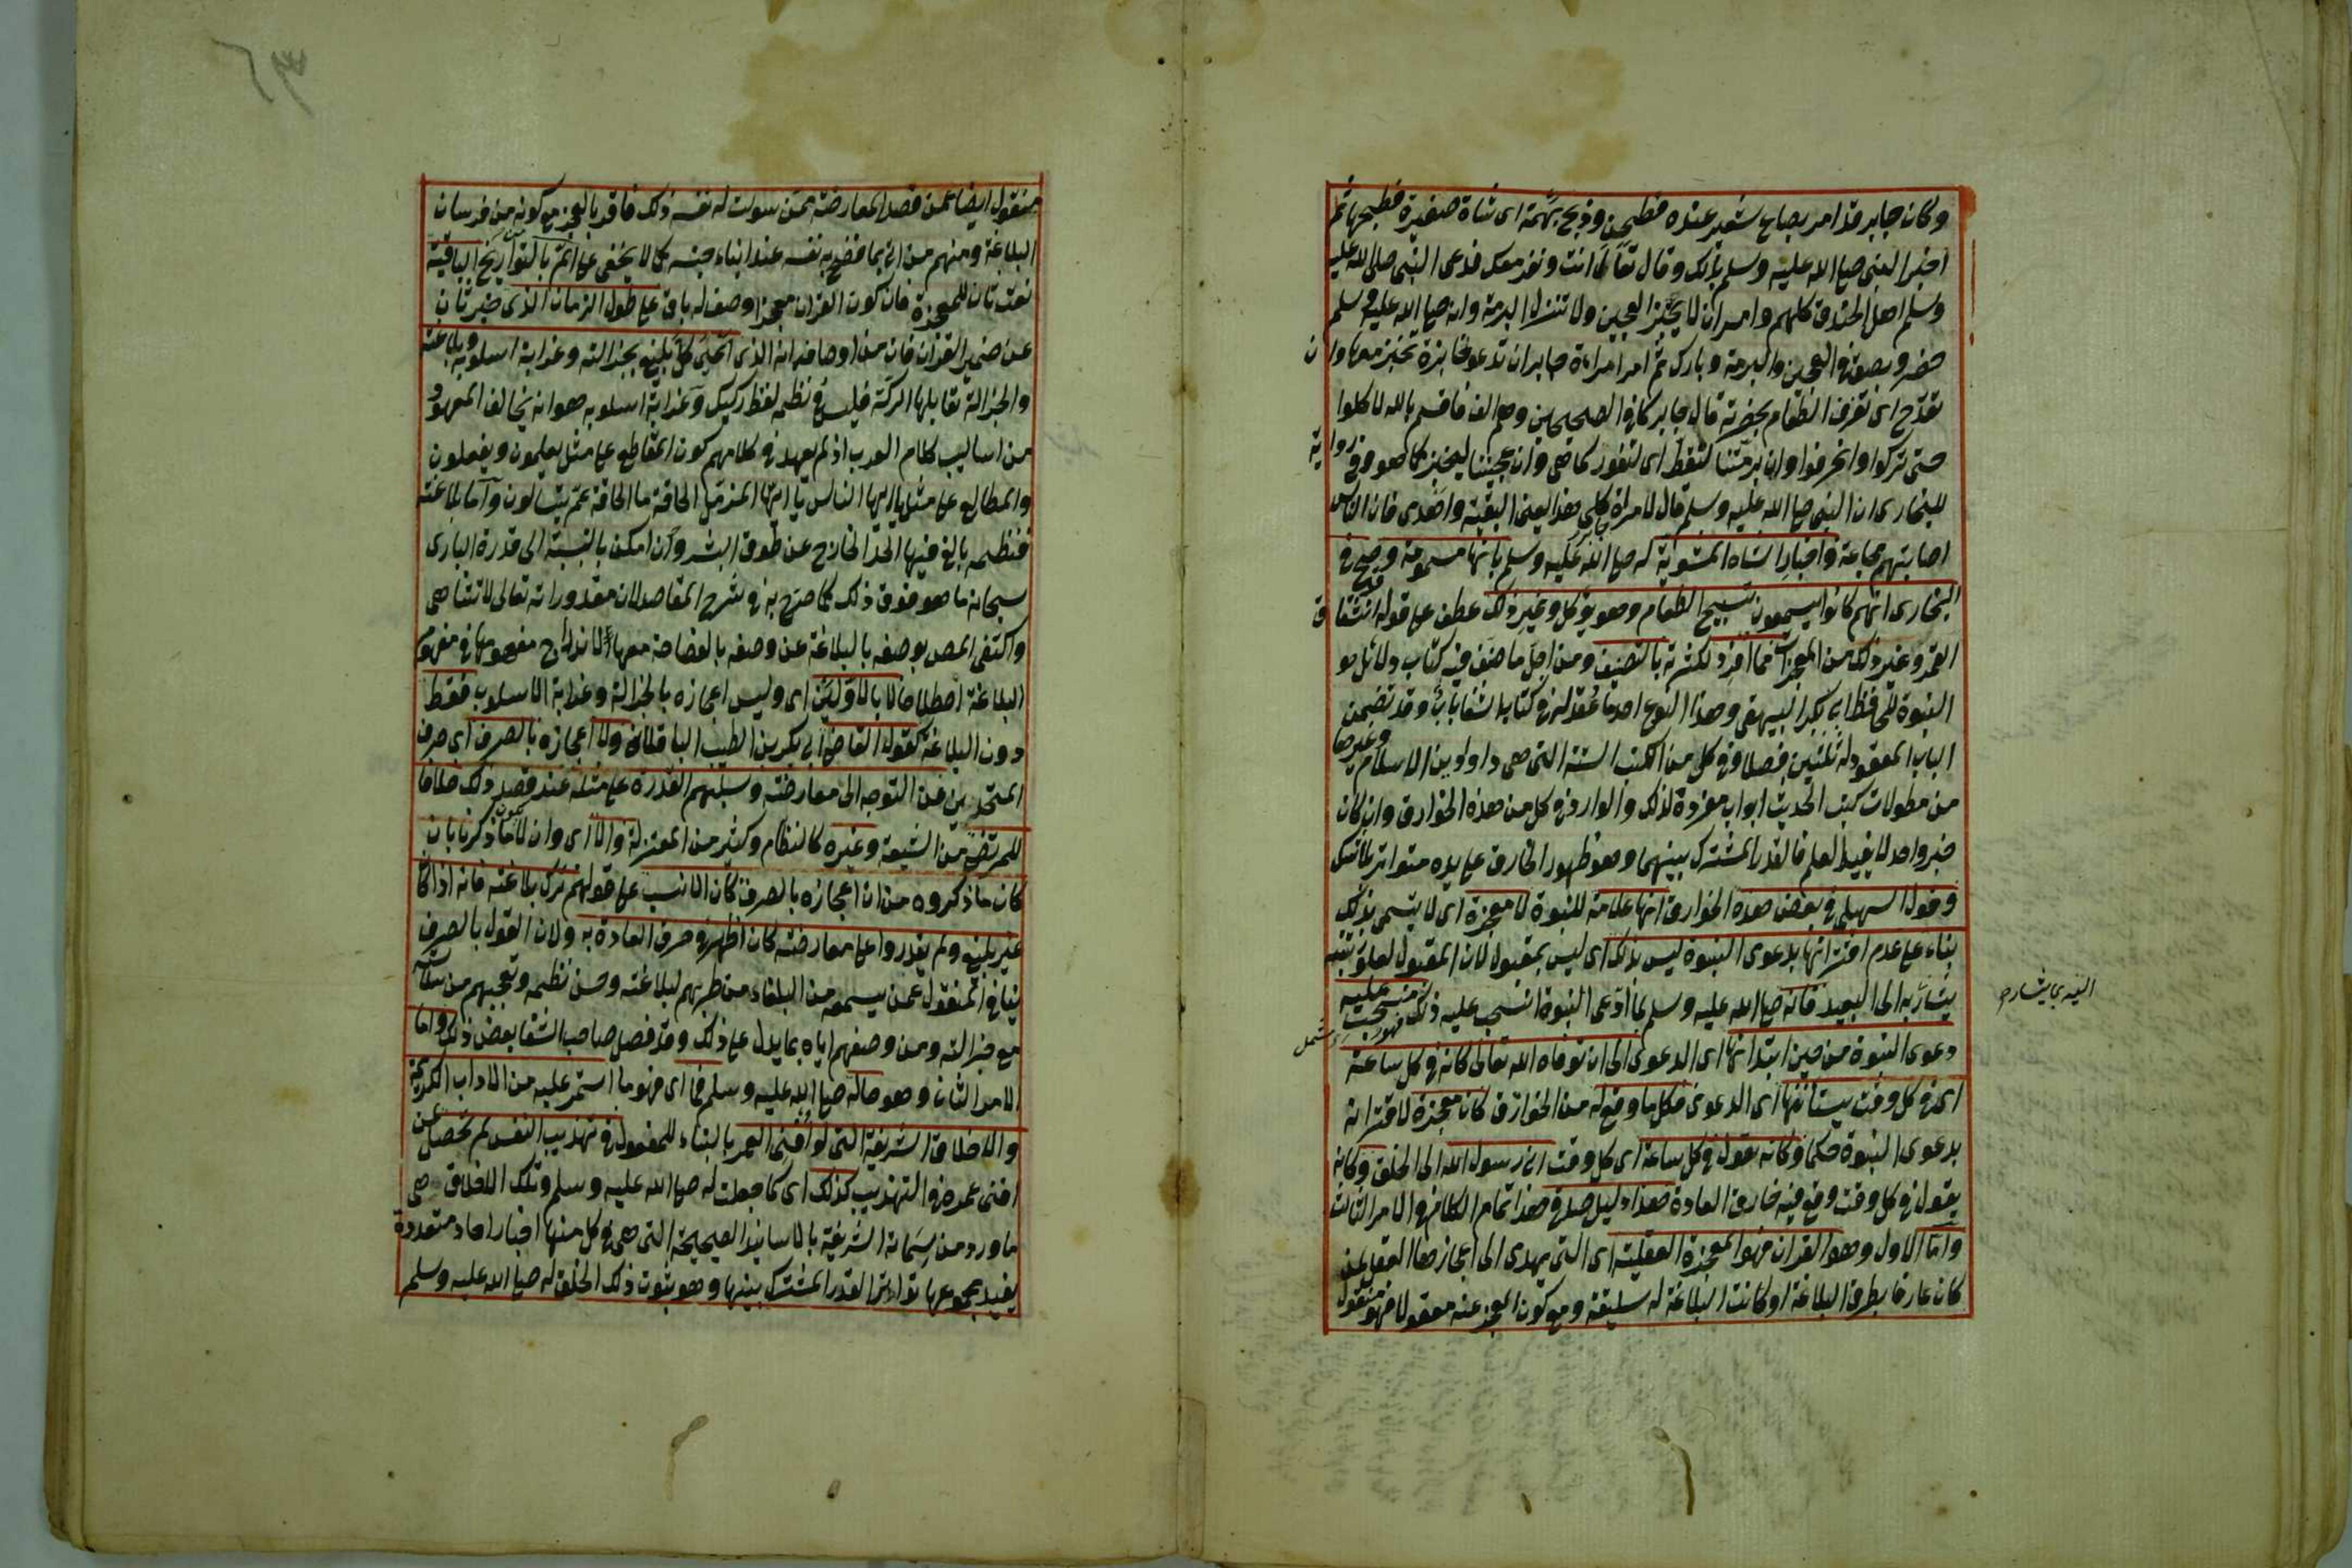 وكان جابر قد امر بصاع شعير عنده فطحن وذبح بهمة اى شاة صغيرة فطبخها ثم
اخبر النبى صلى الله عليه وسلم بذلك وقال تعال انت ونفر معك فدعى النبى صلى الله عليه
وسلم اهل الخندق كلهم وامر ان لا يخبز العجين ولا تنزل البرمة وانه صلى الله عليه وسلم
حضر وبصق فى العجين والبرمة وبارك ثم امر امراءة جابر ان تدعو خابزة تخبز معها وان
تقدح اى تغرف الطعام بحضرته قال جابر كما فى الصحيحين وهم الف فاقسم بالله لاكلوا
حتى تركوا وانحرفوا وان برمتنا لتغط اى لتفور كما هى وان عجيننا ليخبز كما هو وفى رواية
للبخارى ان النبى صلى الله عليه وسلم قال لامراة جابر كلى هذا يعنى البقية واهدى فان الناس
اصابتهم مجاعة واخبار الشاة المشوية له صلى الله عليه وسلم بانها مسمومة وصح فى
البخارى انهم كانوا يسمعون تسبيح الطعام وهو يؤكل وغير ذلك عطف على قوله انشقاق
القمر وغير ذلك من المعجزات مما افرد لكثرته بالتصنيف ومن اجل ما صنف فيه كتاب دلائل
النبوة للحافظ ابى بكر البيهقى وهذا النوع احد ما عقد له فى كتاب الشفا باب وقد تضمن
الباب المعقود له ثلثين فصلا وفى كل من الكتب الستة التى هى دواوين الاسلام وغيرها
من مطولات كتب الحديث ابواب مفردة لذلك والوارد فى كل من هذه الخوارق وان كان
خبر واحد لا يفيد العلم فالقدر المشترك بينهما وهو ظهور الخارق على يده متواتر بلا شك
وقول السهيلى فى بعض هذه الخوارق انها علامة للنبوة لا معجزة اى لا يسمى بذلك
بناء على عدم اقترانها بدعوى النبوة ليس بذلك اى ليس بمقبول لان المقبول لعلو رتبته
يشار به الى البعيد فانه صلى الله عليه وسلم لما ادعى النبوة انسحب عليه ذلك فهو منسحب عليه
دعوى النبوة من حين ابتدائها اى الدعوى الى ان توفاه الله تعالى كانه فى كل ساعة
اى فى كل وقت يستانفها اى الدعوى فكل ما وقع له من الخوارق كان معجزة لاقترانه
بدعوى النبوة حكما وكانه يقول فى كل ساعة اى كل وقت انى رسول الله الى الخلق وكانه
يقول فى كل وقت وقع فيه خارق العادة هذا دليل صدقى هذا تمام الكلام فى الامر الثالث
واما الاول وهو القران فهو المعجزة العقلية اى التى يهدى الى اعجازها العقل لمن
كان عارفا بطرق البلاغة او كانت البلاغة له سليقة ومع كون العجز عنه معقولا فهو منقول
منقول ايضا عمن قصد المعارضة ممن سولت له نفسه ذلك فاقر بالعجز مع كونه من فرسان
البلاغة ومنهم من اتى بما فضح به نفسه عند ابناء جنسه كما لا يخفى على من الم بالتواريخ الباقية
نعت ثان للمعجزة فان كون القران معجزا وصف له باق على طول الزمان الذى خبر ثان
عن ضمير القران فان من اوصافه انه الذى اعيى كل بليغ بجزالته وغرابة اسلوبه وبلاغته
والجزالة تقابلها الركة فليس فى نظمه لفظ ركيك وغرابة اسلوبه هو انه يخالف المعهود
من اساليب كلام العرب اذ لم يعهد فى كلامهم كون المقاطع على مثل يعلمون ويفعلون
والمطالع على مثل يا ايها الناس يا ايها المزمل الحاقة ما الحاقة عم يتسالون واما بلاغته
فنظمه بالغ فيها الحد الخارج عن طوق البشر وان امكن بالنسبة الى قدرة البارى
سبحانه ما هو فوق ذلك كما صرح به فى شرح المقاصد لان مقدوراته تعالى لا تتناهى
واكتفى المص بوصفه بالبلاغة عن وصفه بالفصاحة معها لاندراج مفهومها فى مفهوم
البلاغة اصطلاحا لا بالاولين اى وليس اعجازه بالجزالة وغرابة الاسلوب فقط
دون البلاغة كقول القاضى ابى بكر بن الطيب الباقلانى ولا اعجازه بالصرف اى صرف
المتحدين عن التوجه الى معارضته وسلبهم القدرة على مثله عند قصد ذلك خلافا
للمرتضى من الشيعة وغيره كالنظام وكثير من المعتزلة والا اى وان لا يكون ما ذكرنا بان
كان ما ذكروه من ان اعجازه بالصرف كان الانسب على قولهم ترك بلاغته فانه اذا كان
غير بليغ ولم يقدروا على معارضته كان اظهر فى خرق العادة به ولان القول بالصرف
ينافى المنقول عمن يسمعه من البلغاء من طربهم لبلاغته وحسن نظمه وتعجبهم من سلاسته
مع جزالته ومن وصفهم اياه بما يدل على ذلك وقد فصل صاحب الشفا بعض ذلك واما
الامر الثانى وهو حاله صلى الله عليه وسلم فما اى فهو ما استمر عليه من الاداب الكريمة
والاخلاق الشريفة التى لو افنى العمر بالبناء للمفعول فى تهذيب النفس لم تحصل عن
افنى عمره فى التهذيب كذلك اى كما جعلت له صلى الله عليه وسلم وتلك الاخلاق هى
ما ورد من سماته الشريفة بالاسانيد الصحيحة التى هى فى كل منها اخبار احاد متعددة
يفيد مجموعها تواتر القدر المشترك بينها وهو ثبوت ذلك الخلق له صلى الله عليه وسلم